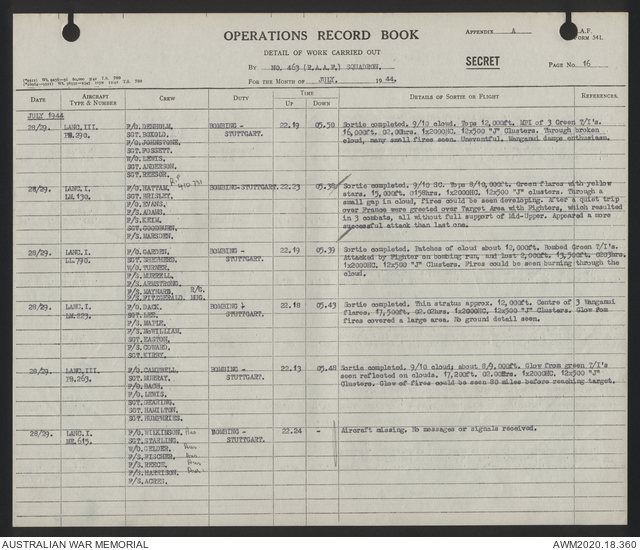 OPERATIONS RECORD BOOK
APPENDIX A
FORM 541.
DETAIL OF WORK CARRIED OUT
BY NO. 463 (R.A.A.F.) SQUADRON.
SECRET
PAGE NO. 16
FOR THE MONTH OF JULY, 1944.
DATE AIRCRAFT TYPE & NUMBER CREW DUTY TIME UP DOWN DETAILS OF SORTIE OR FLIGHT REFERENCES.
JULY 1944
28/29. LANC.III. BOMBING - 22.19 03.50 Sortie completed. 9/10 cloud. Tops 12,000ft. MPI of 3 Green T/I's.
SGT. BOXOLD. STUTTGART. 16,000ft. 02.00hrs. 1x2000HC, 12x500 "J" Clusters. Through broken
F/O. JOHNSTONE. cloud, many small fires seen. Uneventful. Wanganui damps enthusiasm.
SGT. FOSSETT.
W/O. LEWIS.
SGT. ANDERSON.
SGT. REESOR.
28/29. LANC.I. F/O. HATTAM. BOMBING-STUTTGART. 22.23 Sortie completed. 9/10 SC. Tops 8/10,000ft. Green flares with yellow
LM.130. SGT. BRISLEY. stars. 15,000ft. 0158hrs. 1x2000HC, 12x500 "J" clusters. Through a
F/O. EVANS. small gap in cloud, fires could be seen developing. After a quiet trip
F/O. ADAMS. over France were greeted over Target Area with Fighters, which resulted
F/S. KEIM. in 3 combats, all without full support of Mid-Upper. Appeared a more
SGT. GOODBURN. successful attack than last one.
F/S. MARSDEN.
28/29. LANC.I. F/O. GARDEN. BOMBING - 22.19 05.39 Sortie completed. Patches of cloud about 12,000ft. Bombed Green T/I's.
LL.790. SGT. SHEPHERD. STUTTGART. Attacked by Fighter on bombing run, and lost 2,000ft. 13,500ft. 0203hrs.
W/O. TURNER. 1x2000HC, 12x500 "J" Clusters. Fires could be seen burning through the
F/S. MURRELL. cloud.
F/S. ARMSTRONG.
F/S. MAYNARD. R/G.
F/S. FITZGERALD. MUG.
28/29. LANC.I. F/O. DACK. BOMBING - 22.18 05.43 Sortie completed. Thin stratus approx. 12,000ft. Centre of 3 Wanganui
LM.223. SGT. LEE. STUTTGART. flares. 17,500ft. 02.02hrs. 1x2000HC, 12x500 "J" Clusters. Glow from
F/S. MAPLE. fires covered a large area. No ground detail seen.
F/S. McWILLIAM.
SGT. EASTON.
F/S. COWARD.
SGT. KIRBY.
28/29. LANC.III. F/O. CAMPBELL. BOMBING - 22.13 05.48 Sortie completed. 9/10 cloud; about 8/9,000ft. Glow from green T/I's
PB.263. SGT. MURRAY. STUTTGART. seen reflected on clouds. 17,200ft. 02.00hrs. 1x2000HC, 12x500 "J"
F/O. BACH. Clusters. Glow of fires could be seen 80 miles before reaching target.
F/O. LEWIS.
SGT. DEARING.
SGT. HAMILTON.
SGT. HUMPHRIES.
28/29. LANC.I. F/O. WILKINSON. BOMBING - 22.24 - Aircraft missing. No messages or signals received.
ME.615. SGT. STARLING. STUTTGART.
W/O. GELDER.
F/S. FISCHER.
F/S. REECE.
F/S. HARRISON.
F/S. ACRES.
AUSTRALIAN WAR MEMORIAL AWM2020.18.360